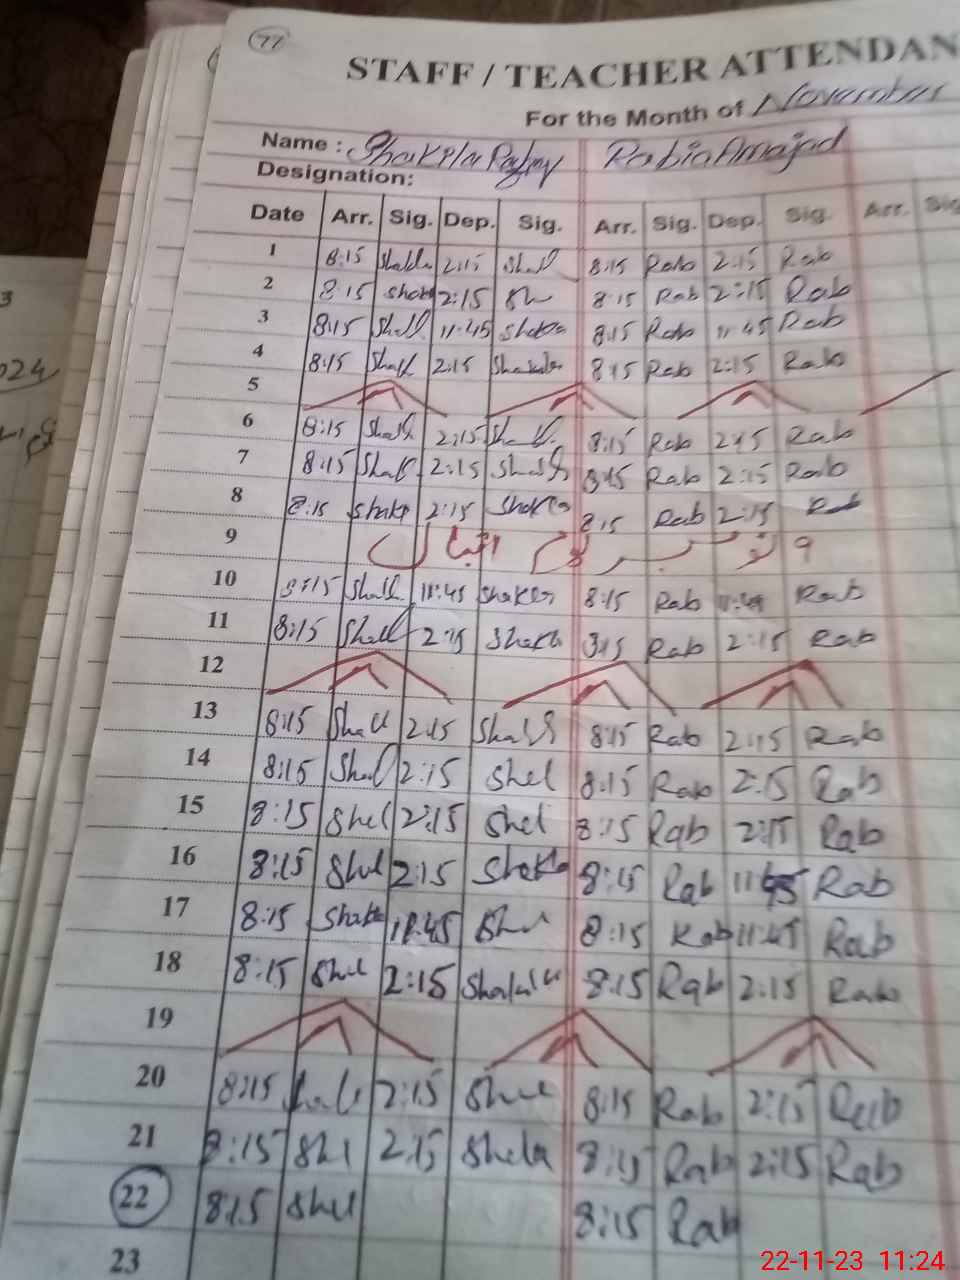 77
STAFF / TEACHER ATTENDAN
For the Month of November
Name : Shakila Rabia Amajad
Designation:
Date Arr. Sig. Dep. Sig. Arr. Sig. Dep. Sig. Arr. Sig
1 8:15 2:15 Shall 8:15 Rab 2:15 Rab
2 8:15 Shak 2:15 Sh 8:15 Rab 2:15 Rab
3 8:15 Shall 11:45 8:15 Rab 11:45 Rab
4 8:15 Shall 2:15 Shakila 8:15 Rab 2:15 Rab
5
6 8:15 Shall 2:15 Shall 8:15 Rab 2:15 Rab
7 8:15 Shall 2:15 8:15 Rab 2:15 Rab
8 8:15 Shak 2:15 8:15 Rab 2:15 Rab
9 9 نومبر یوم اقبال
10 8:15 Shall 11:45 8:15 Rab 11:45 Rab
11 8:15 Shall 2:15 8:15 Rab 2:15 Rab
12
13 8:15 Shall 2:15 8:15 Rab 2:15 Rab
14 8:15 Shal 2:15 Shel 8:15 Rab 2:15 Rab
15 8:15 Shel 2:15 Shel 8:15 Rab 2:15 Rab
16 8:15 Shel 2:15 8:15 Rab 11:45 Rab
17 8:15 Shak 11:45 8:15 Rab 11:45 Rab
18 8:15 Shel 2:15 8:15 Rab 2:15 Rab
19
20 8:15 2:15 8:15 Rab 2:15 Rab
21 8:15 Shl 2:15 Shela 8:15 Rab 2:15 Rab
22 8:15 Shel 8:15 Rab
23
024
22-11-23 11:24